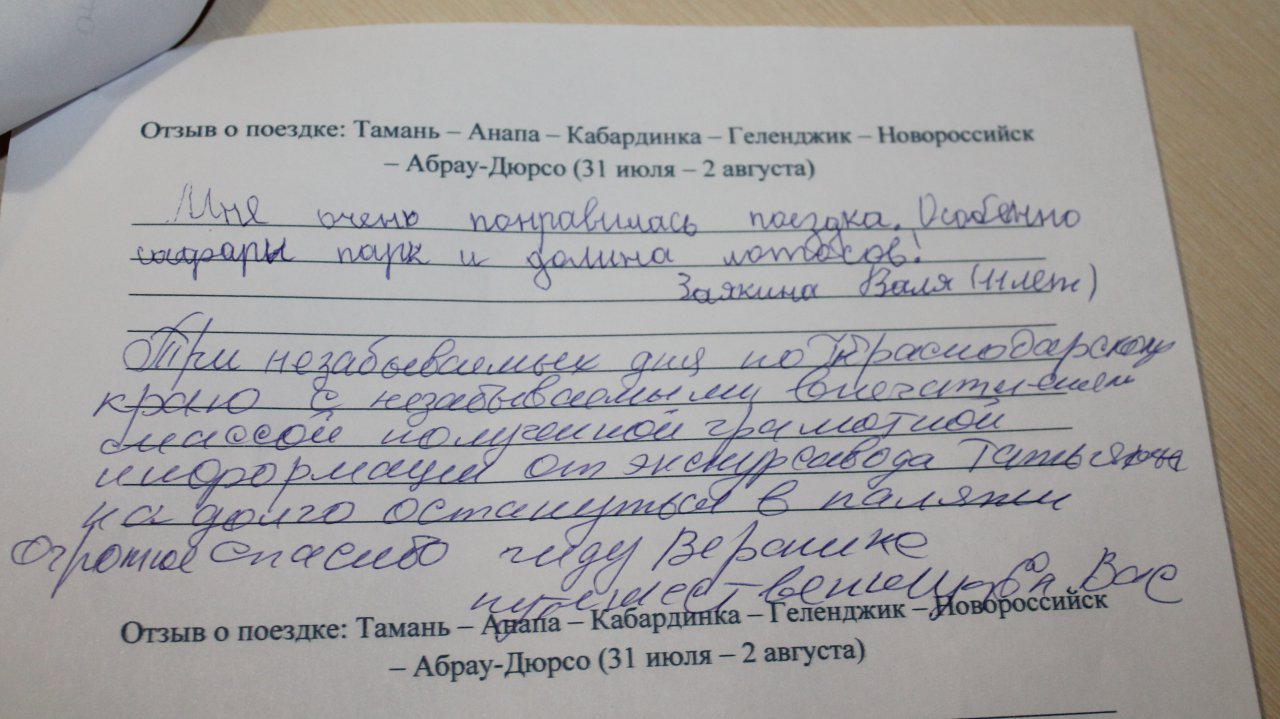 Отзыв о поездке: Тамань – Анапа – Кабардинка – Геленджик – Новороссийск
– Абрау-Дюрсо (31 июля – 2 августа)
Мне очень понравилась поездка. Особенно
сафари парк и долина лотосов!
Заякина Валя (11 лет)
Три незабываемых дня по Краснодарскому
краю с незабываемыми впечатлением
массой полученной грамотной
информации от экскурсавода Татьяны
на долго остануться в памяти
Огромное спасибо гиду Веронике
Вас
Отзыв о поездке: Тамань – Анапа – Кабардинка – Геленджик – Новороссийск
– Абрау-Дюрсо (31 июля – 2 августа)